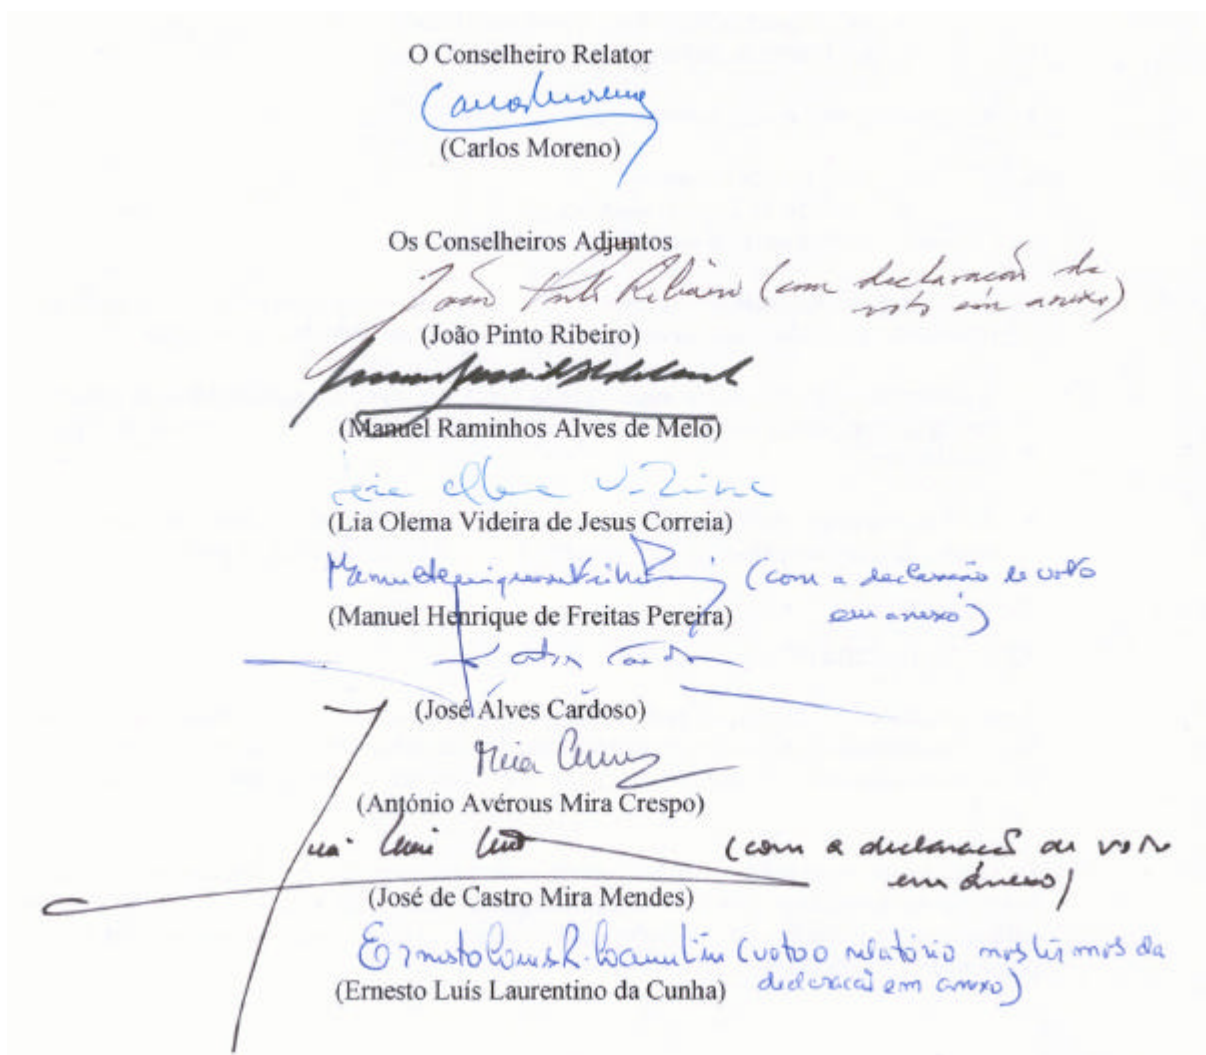 O Conselheiro Relator
Carlos Moreno
(Carlos Moreno)
Os Conselheiros Adjuntos
João Pinto Ribeiro (com declaração de
voto em anexo)
(João Pinto Ribeiro)
(Manuel Raminhos Alves de Melo)
(Lia Olema Videira de Jesus Correia)
(com a declaração de voto
em anexo)
(Manuel Henrique de Freitas Pereira)
(José Álves Cardoso)
Mira Crespo
(António Avérous Mira Crespo)
(com a declaração de voto
em anexo)
(José de Castro Mira Mendes)
Ernesto (voto o relatório nos termos da
declaração em anexo)
(Ernesto Luís Laurentino da Cunha)